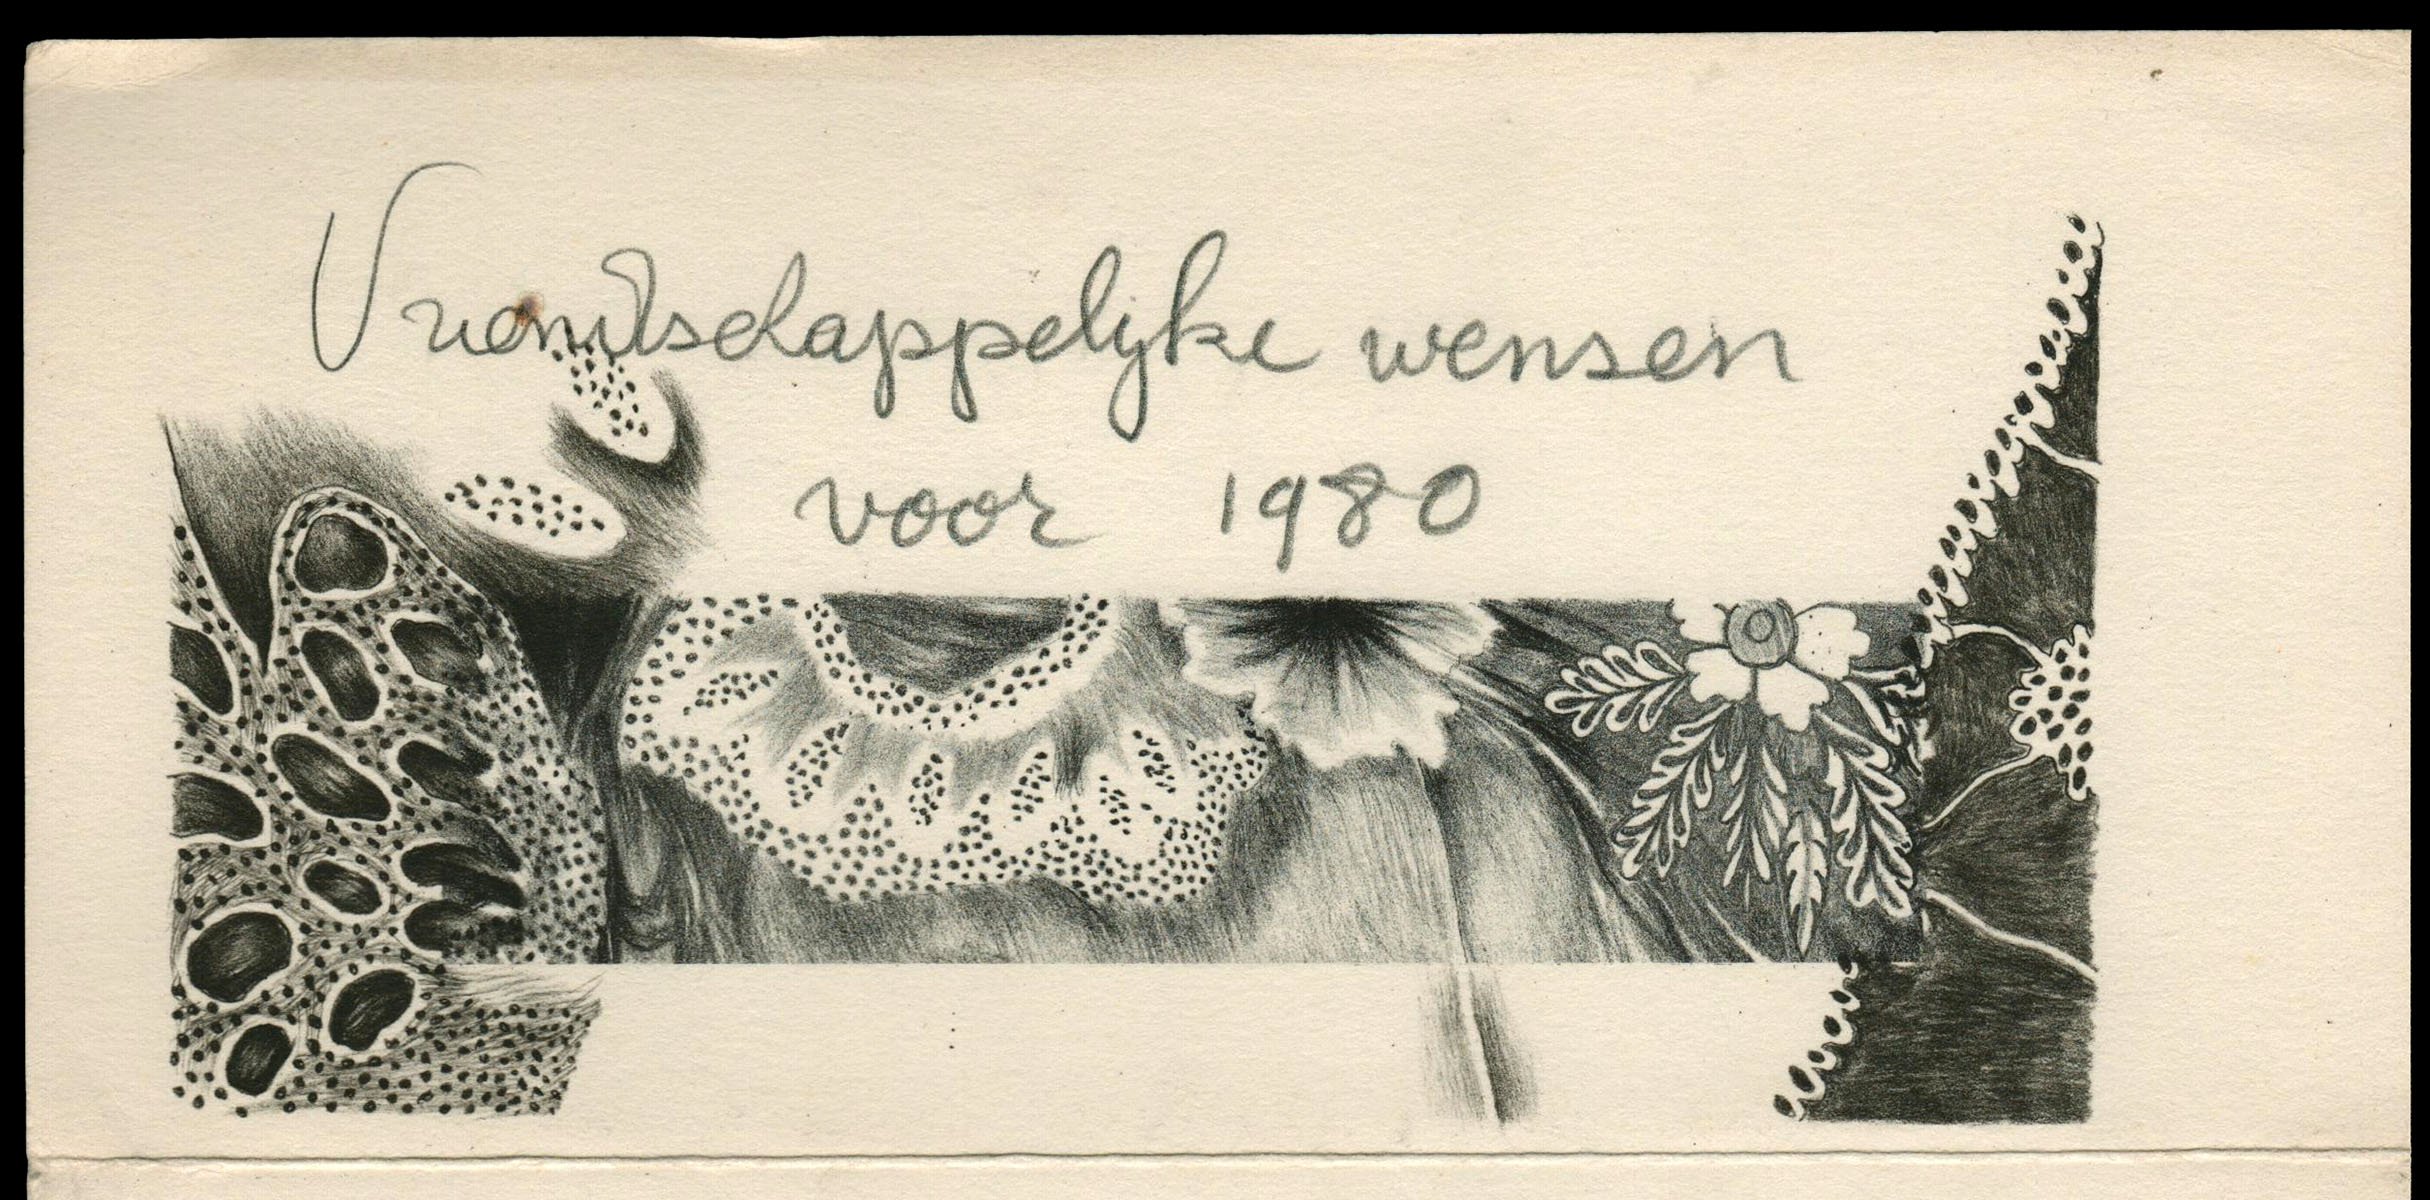 Vriendschappelijke wensen
voor 1980